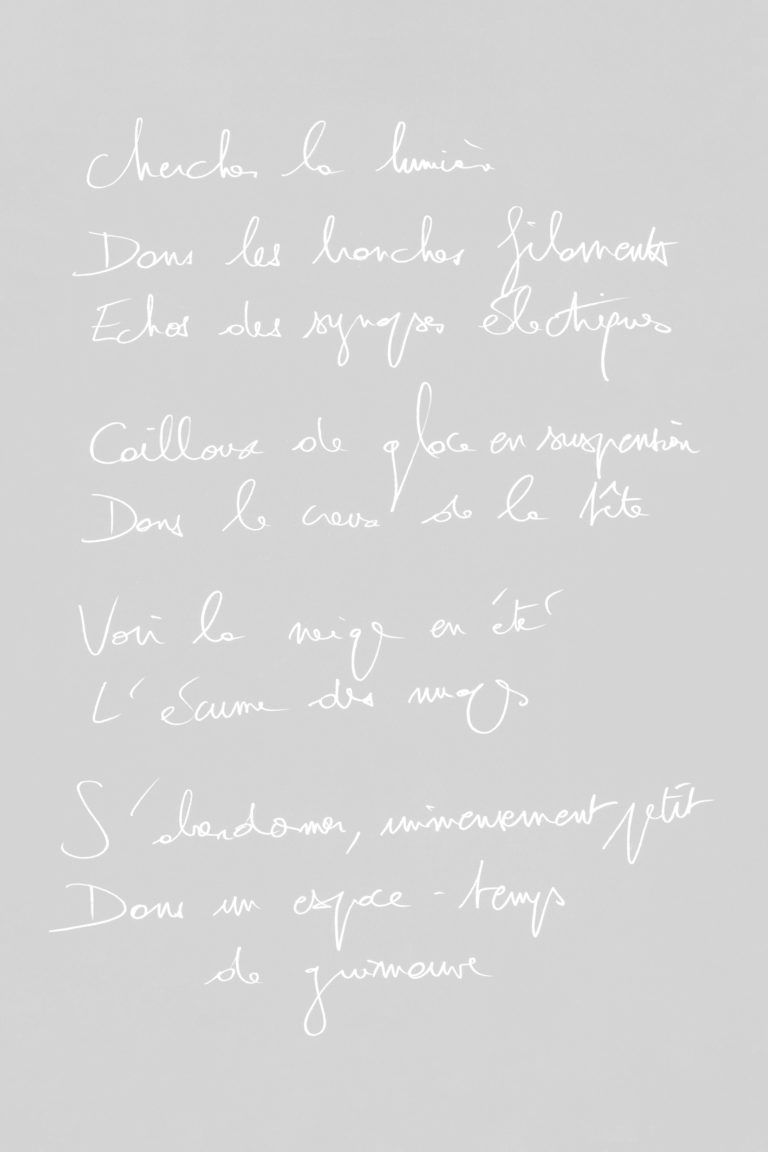 Chercher la lumière
Dans les branches filaments
Echos des synapses électriques
Cailloux de glace en suspension
Dans le creux de la tête
Voir la neige en été
L'écume des nuages
S'abandonner, immensément petit
Dans un espace-temps
de guimauve